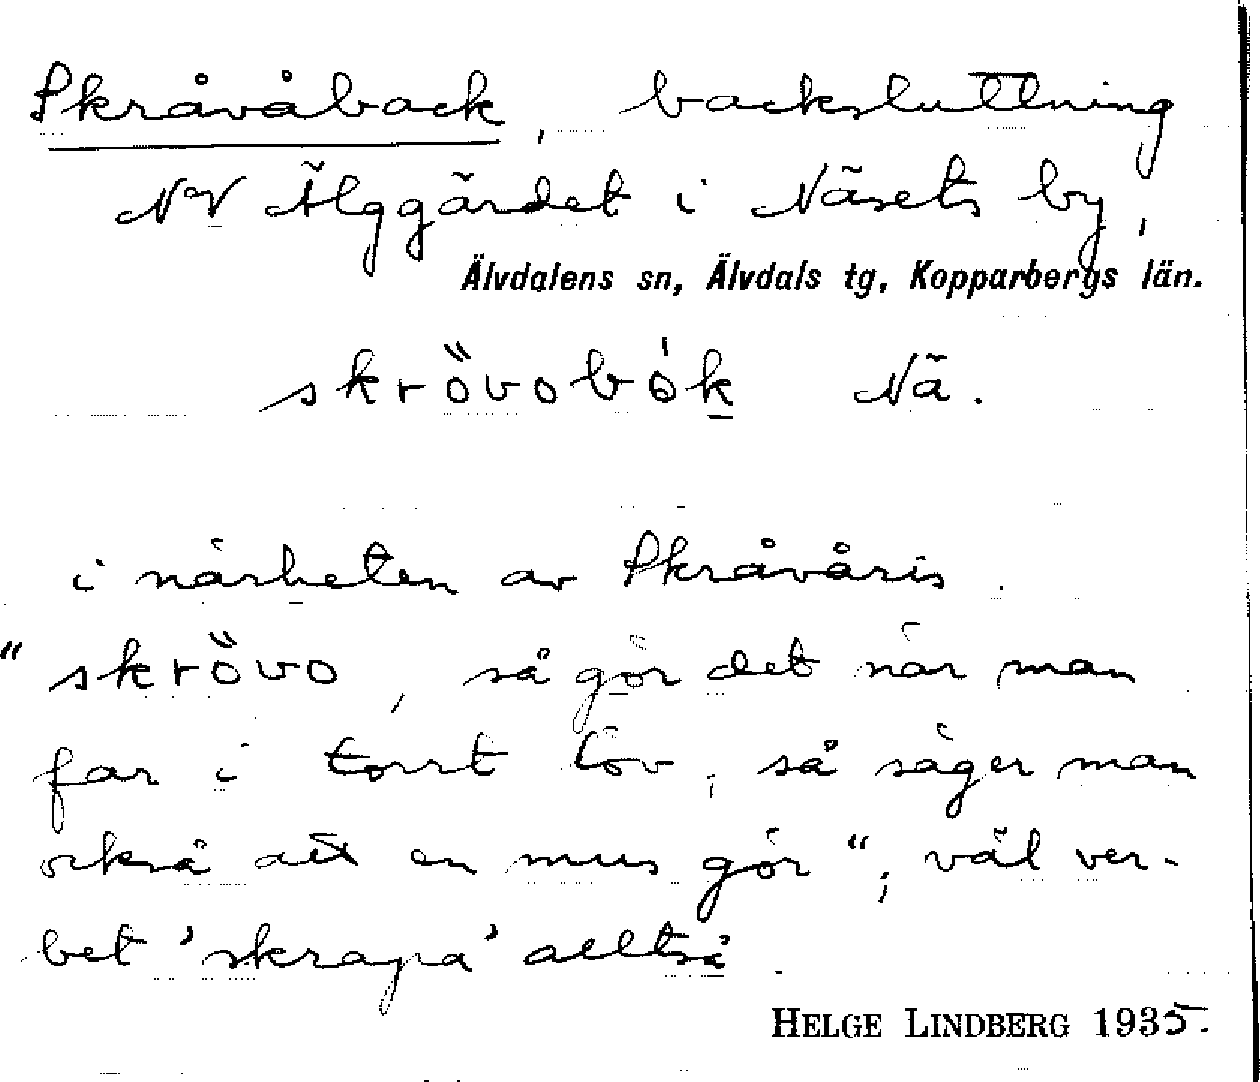 Skråvåback, backsluttning
NV Älggärdet i Näsets by,
Älvdalens sn, Älvdals tg, Kopparbergs län.
skrövobók Nä.
i närheten av Skråvåris.
"skrövo, så gör det när man
far i torrt löv, så säger man
också att en mus gör"; väl ver-
bet 'skrapa' alltså.
HELGE LINDBERG 1935.